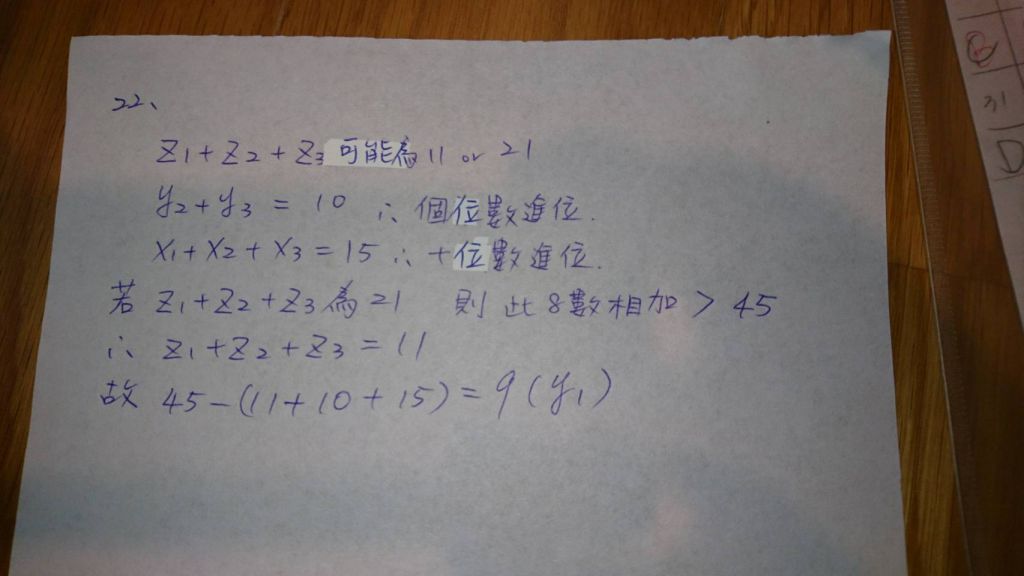 22、
Z1+Z2+Z3 可能為 11 or 21
y2+y3 = 10 ∴ 個位數進位.
X1+X2+X3=15 ∴ 十位數進位.
若 Z1+Z2+Z3為21 則此8數相加 > 45
∴ Z1+Z2+Z3 = 11
故 45-(11+10+15)=9(y1)
B
31
D